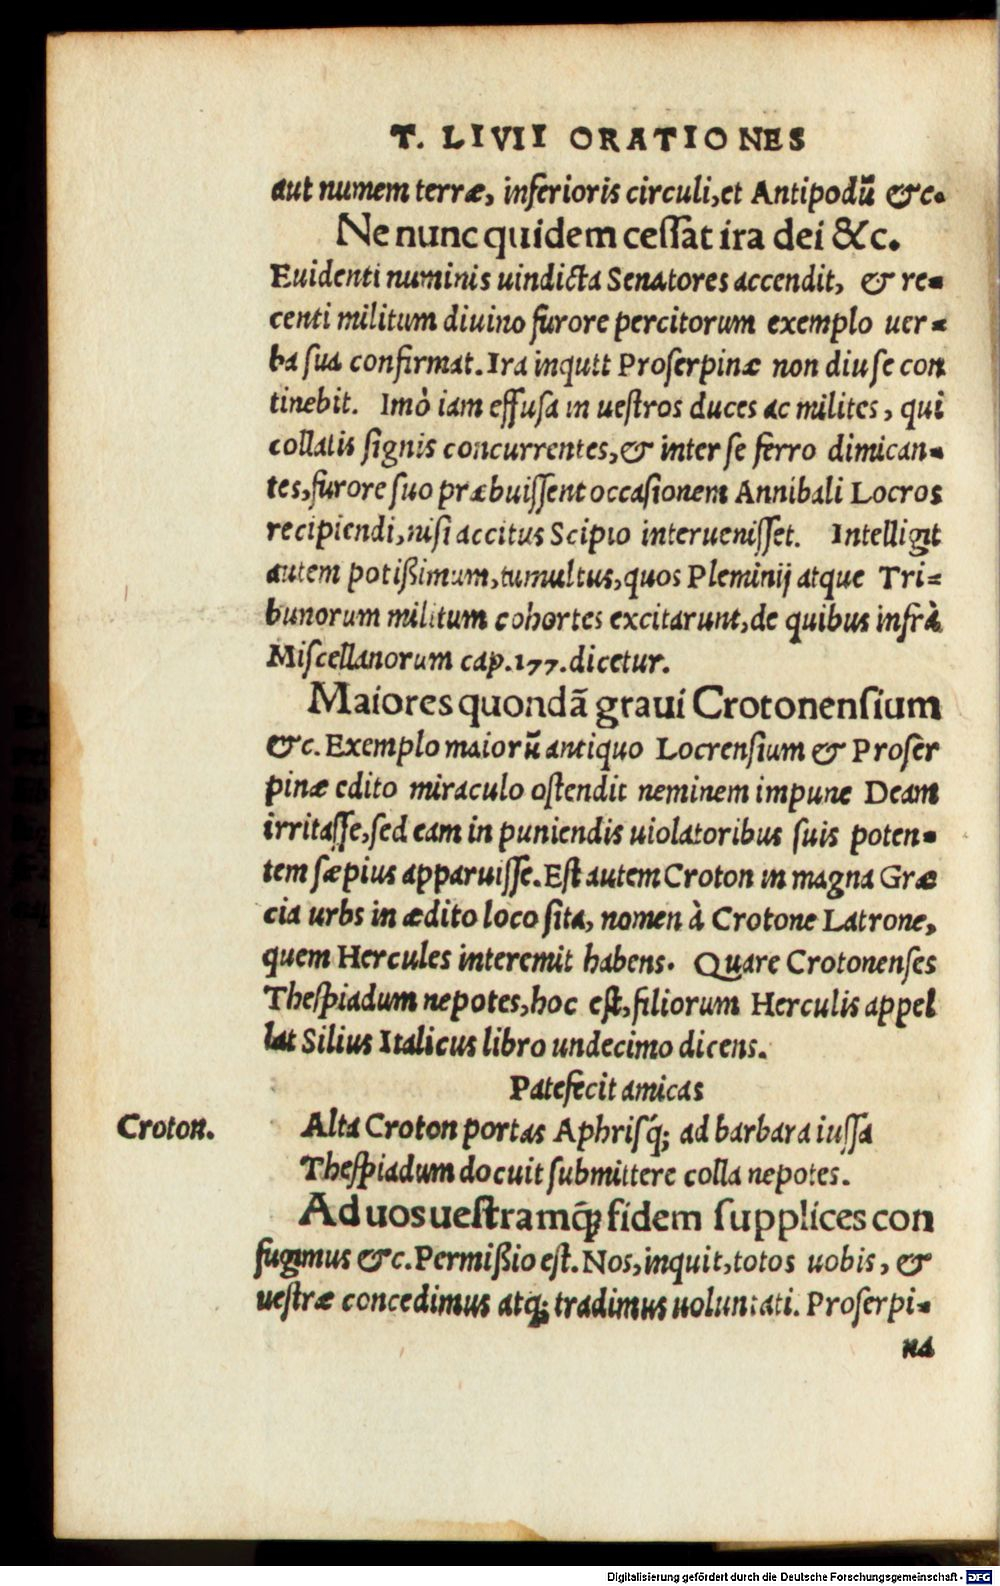 T. LIVII ORATIONES
aut numem terræ, inferioris circuli, et Antipodū &c.
Ne nunc quidem ceſſat ira dei &c.
Euidenti numinis uindicta Senatores accendit, & re-
centi militum diuino furore percitorum exemplo uer-
ba ſua confirmat. Ira inquit Proſerpinæ non diu ſe con
tinebit. Imò iam effuſa in ueſtros duces ac milites, qui
collatis ſignis concurrentes, & inter ſe ferro dimican-
tes, furore ſuo præbuiſſent occaſionem Annibali Locros
recipiendi, niſi accitus Scipio interueniſſet. Intelligit
autem potißimum, tumultus, quos Pleminij atque Tri=
bunorum militum cohortes excitarunt, de quibus infrà
Miſcellanorum cap. 177. dicetur.
Maiores quondã graui Crotonenſium
&c. Exemplo maiorū antiquo Locrenſium & Proſer
pinæ edito miraculo oſtendit neminem impune Deam
irritaſſe, ſed eam in puniendis uiolatoribus ſuis poten-
tem ſæpius apparuiſſe. Eſt autem Croton in magna Græ
cia urbs in ædito loco ſita, nomen à Crotone Latrone,
quem Hercules interemit habens. Quare Crotonenſes
Theſpiadum nepotes, hoc eſt, filiorum Herculis appel
lat Silius Italicus libro undecimo dicens.
Patefecit amicas
Croton.
Alta Croton portas Aphriſq́; ad barbara iuſſa
Theſpiadum docuit ſubmittere colla nepotes.
Ad uos ueſtramq́; fidem ſupplices con
fugimus &c. Permißio eſt. Nos, inquit, totos uobis, &
ueſtræ concedimus atq; tradimus uoluntati. Proſerpi-
na
Digitalisierung gefördert durch die Deutsche Forschungsgemeinschaft - DFG